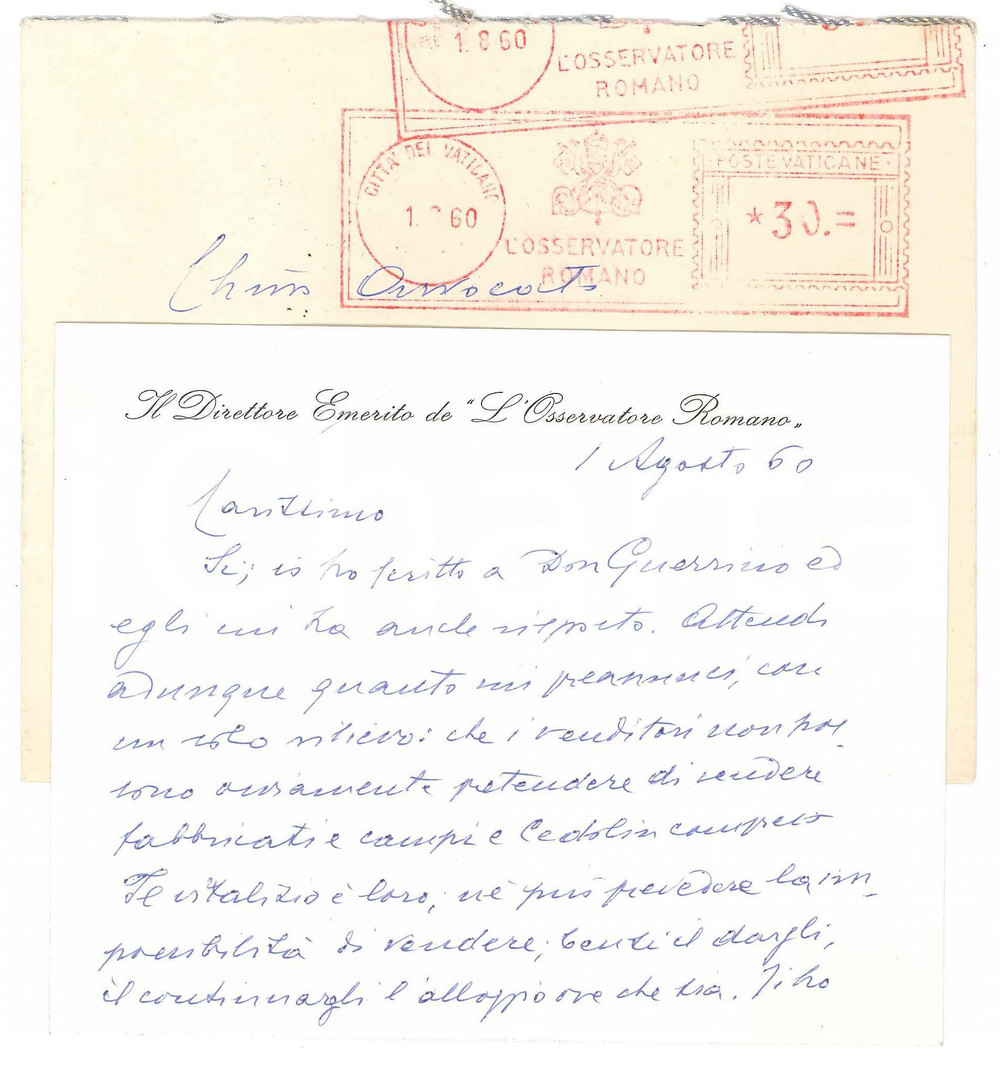 1.8.60
L'OSSERVATORE
ROMANO
CITTA' DEL VATICANO
1. 60
L'OSSERVATORE
ROMANO
POSTE VATICANE
*30.=
Avvocato
Il Direttore Emerito de "L'Osservatore Romano"
1 Agosto 60
Carissimo
Si; io ho scritto a Don Guerrino ed
egli mi ha anche risposto. Attendo
adunque quanto mi preannunci, con
un solo rilievo: che i venditori non pos-
sono ovviamente pretendere di vendere
fabbricati e campi e Cedolin compreso
Il vitalizio è loro; nè può prevedere la im-
possibilità di vendere; bensì il dargli,
il continuargli l'alloggio ove che sia. Ti ho